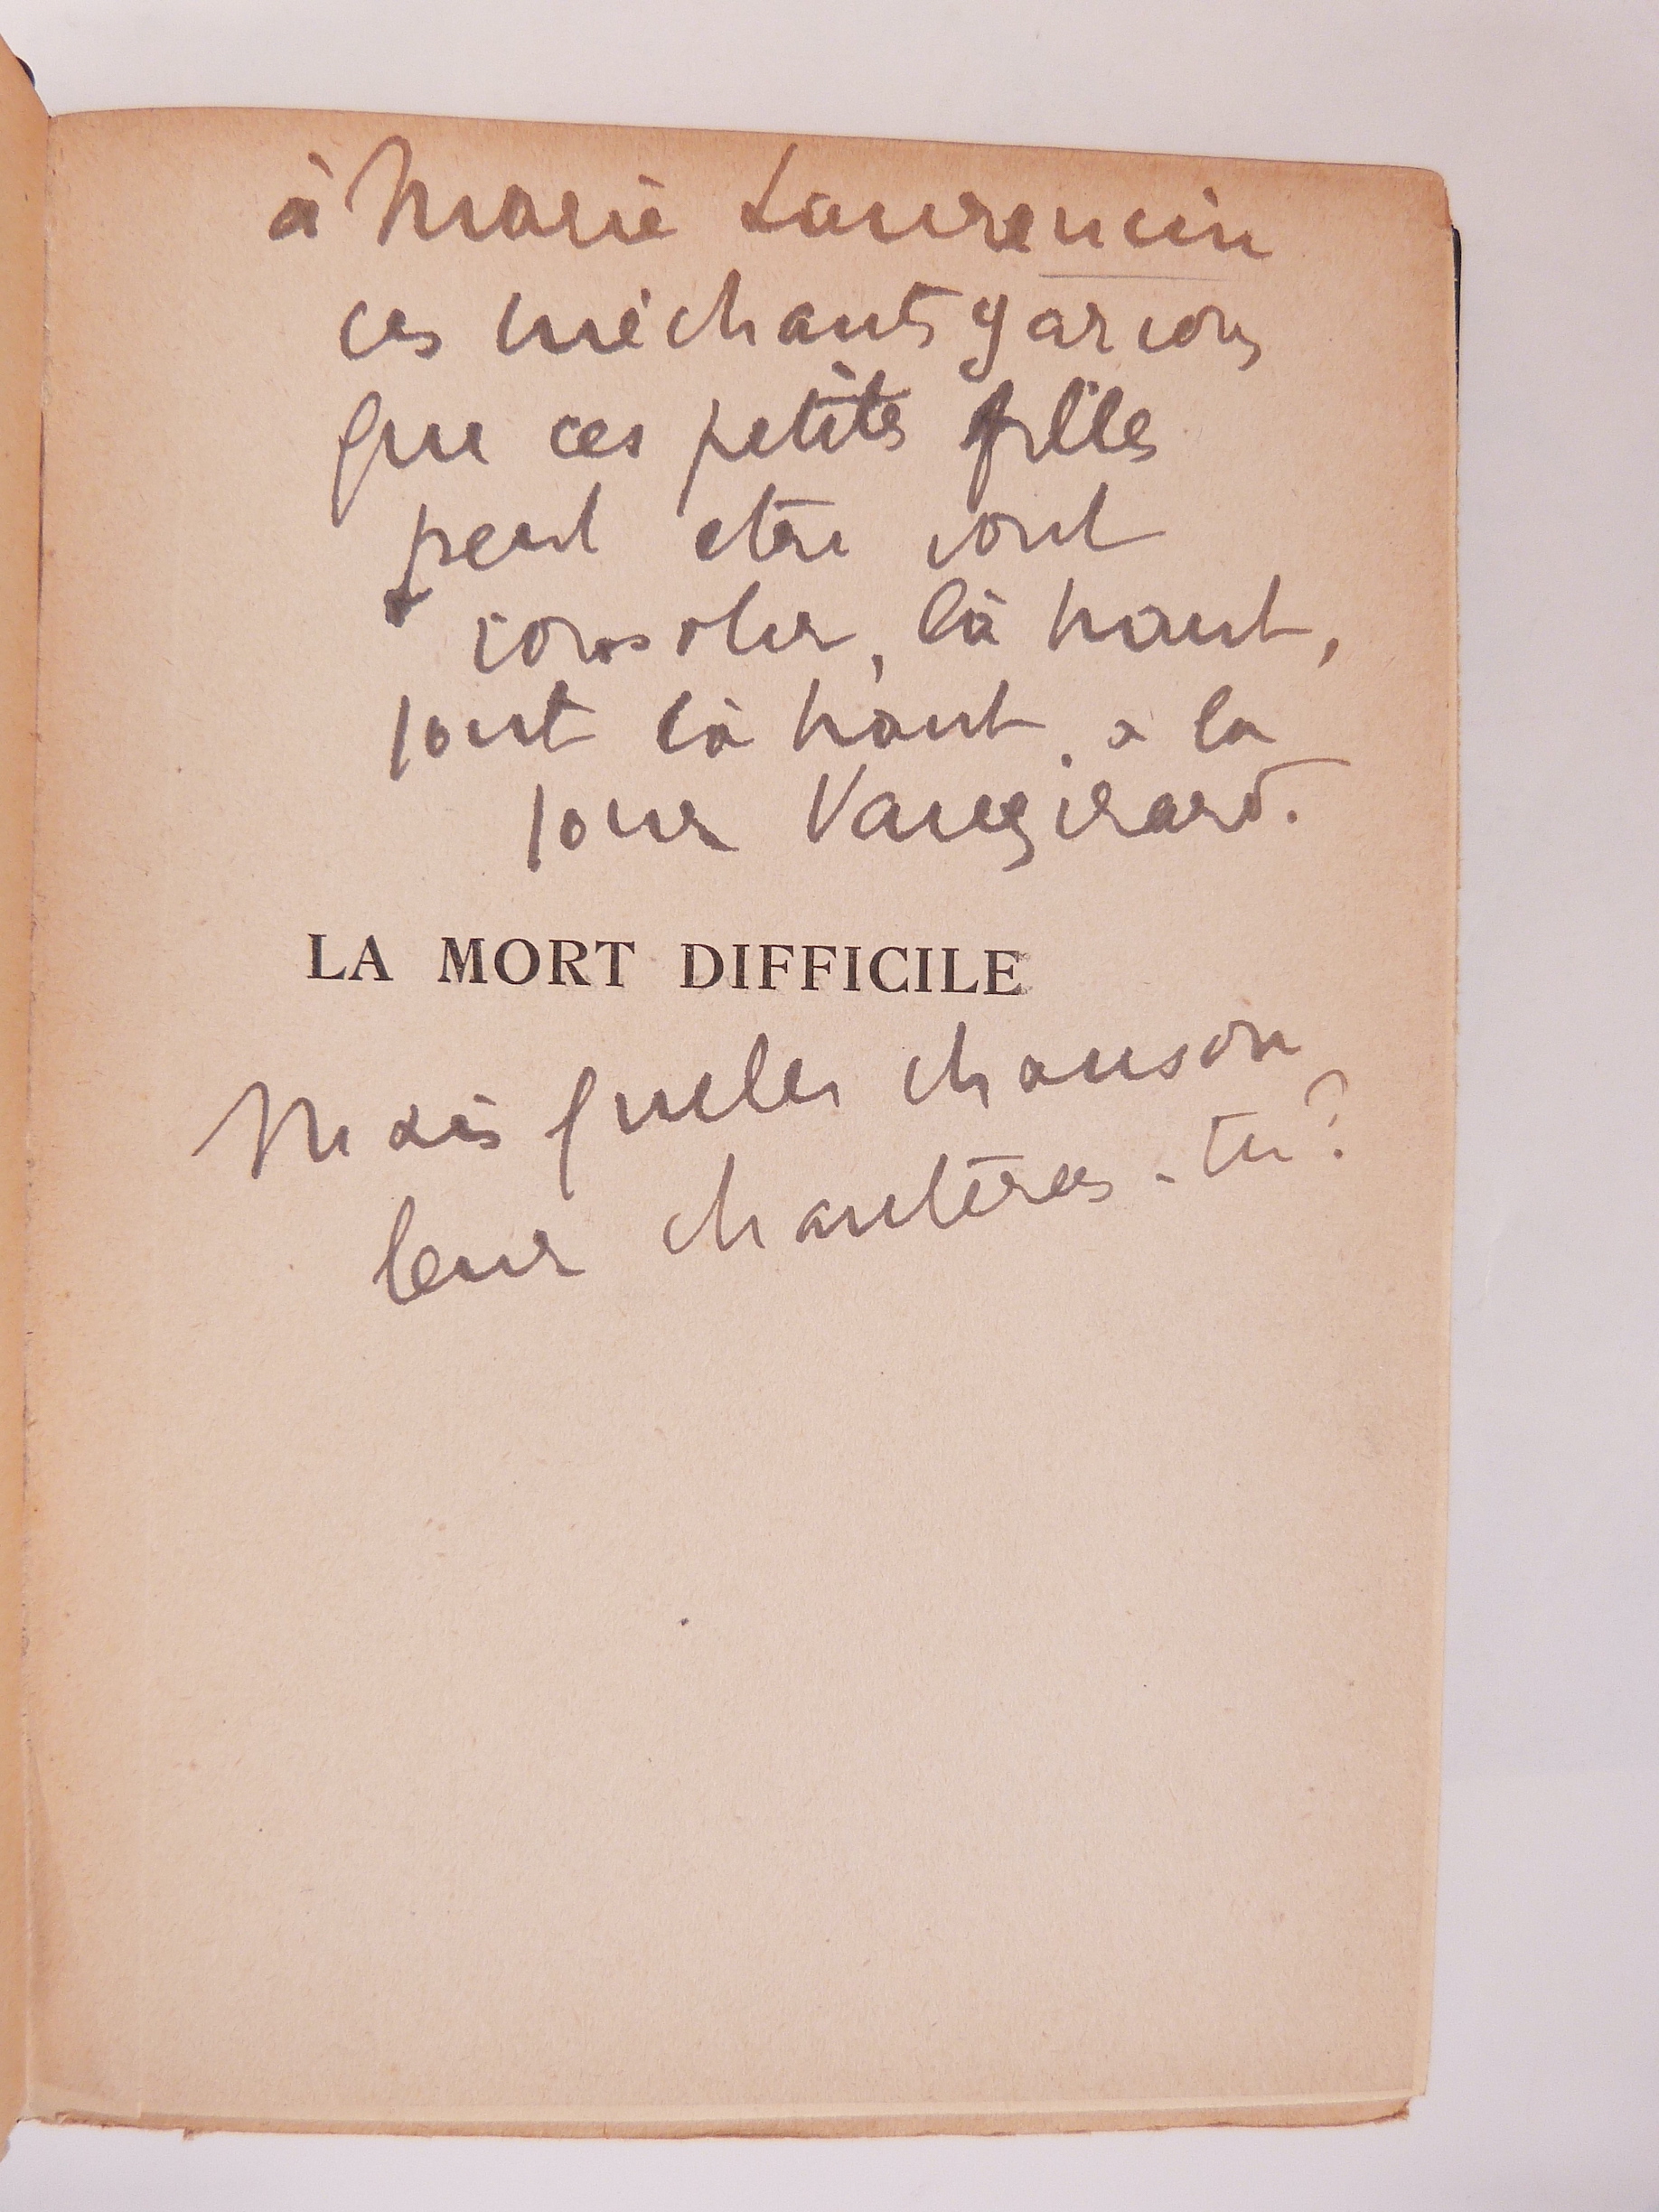 à Marie Laurencin
ces méchants garçons
que ces petites filles
peut etre vont
consoler, là haut,
tout là haut, a la
tour Vaugirard.
LA MORT DIFFICILE
Mais quelles chanson
leur chanteras-tu ?